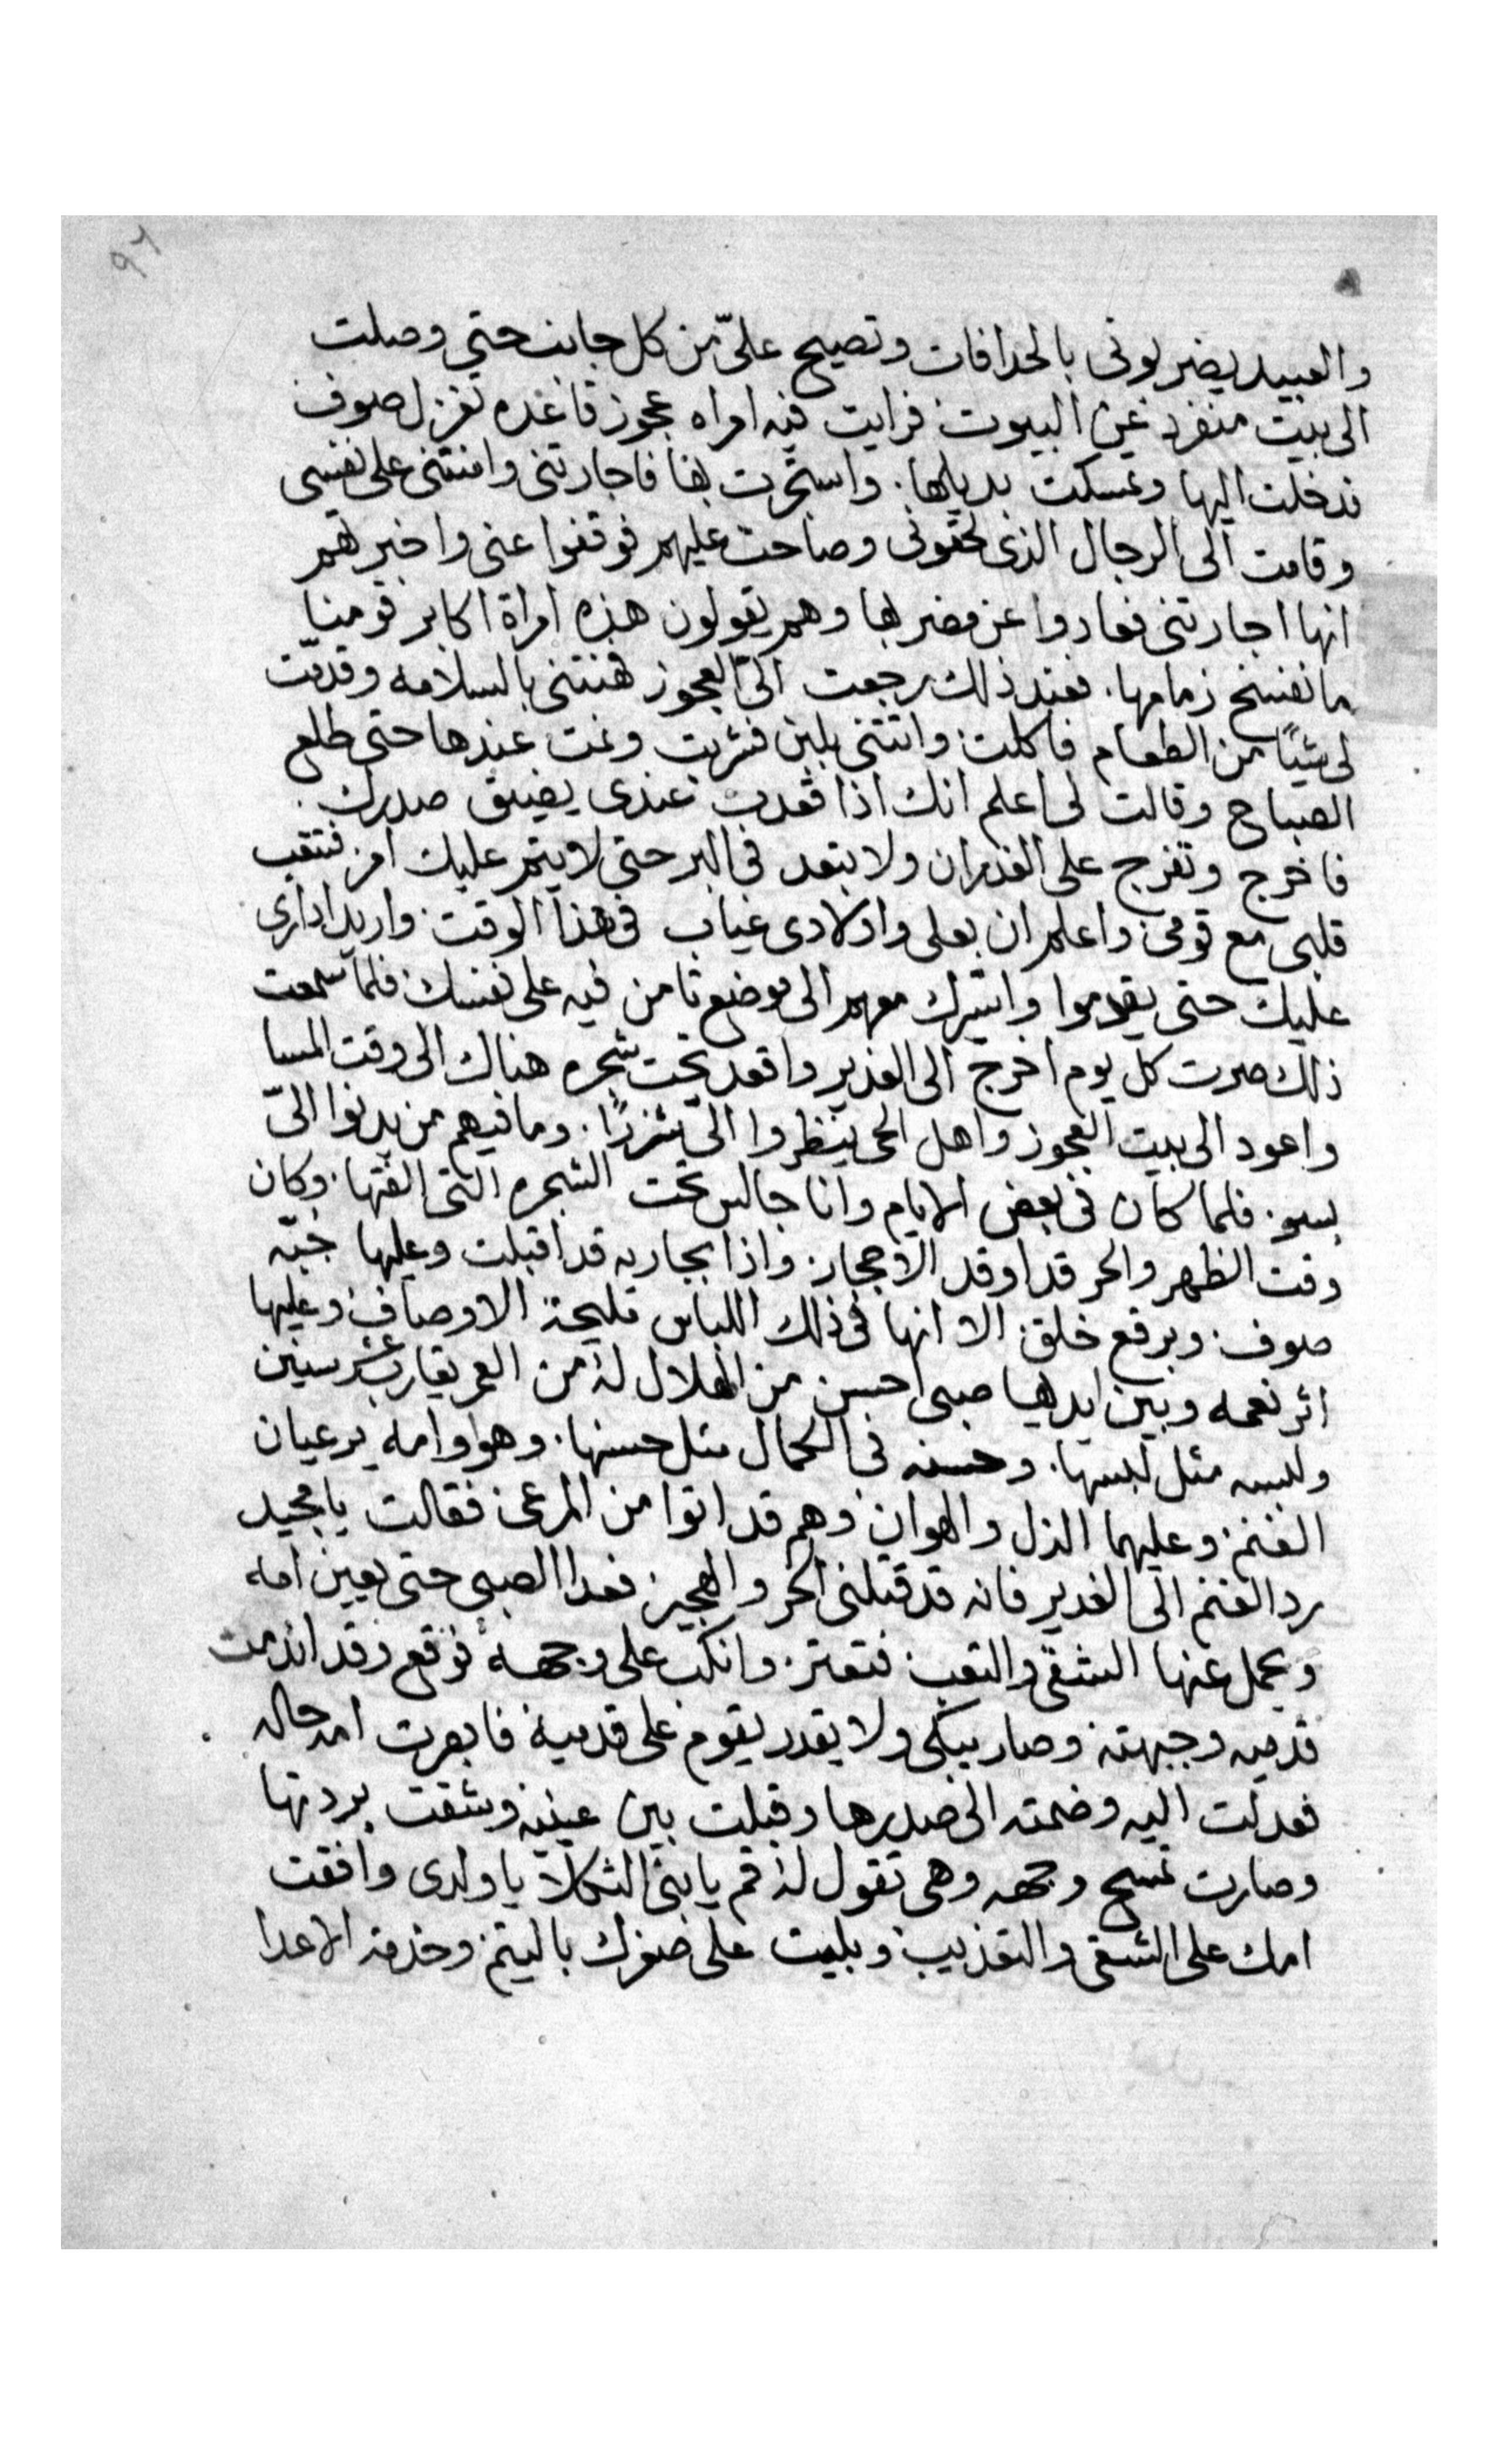 ٩٢
والعبيد يضربونى بالحدافات وتصيح علىّ من كل جانب حتي وصلت
الى بيت منفرد عن البيوت فرايت فيه امراه عجوز قاعده تغزل صوف
فدخلت اليها وتمسكت بديلها. واستجرت بها فاجارتنى وامنتنى على نفسى
وقامت الى الرجال الذى لحقونى وصاحت عليهم فوقفوا عنى واخبرتهم
انها اجارتنى فعادوا عن مضربها وهم يقولون هذه امراة اكابر قومنا
ما نفسخ زمامها. فعند ذلك رجعت الىّ العجوز هنتنى بالسلامه وقدمّت
لى شيئًا من الطعام فاكلت واتتنى بلبن فشربت ونمت عندها حتى طلع
الصباح وقالت لى اعلم انك اذا قعدت عندى يضيق صدرك.
فاخرج وتفرج على الغدران ولا تبعد فى البر حتى لا يتم عليك امر فتتعب
قلبى مع قومى واعلم ان بعلى واولادى غياب فى هذا الوقت واريد ادارى
عليك حتى يقدموا واسيرك معهم الى موضع تامن فيه على نفسك فلما سمعت
ذلك صرت كل يوم اخرج الى الغدير واقعد تحت شجره هناك الى وقت المسا
واعود الى بيت العجوز واهل الحى ينظروا الىّ شزرًا. وما فيهم من يدنوا الىّ
بسو. فلما كان فى بعض الايام وانا جالس تحت الشجره التى الفتها. وكان
وقت الظهر والحر قد اوقد الاحجار. واذا بجاريه قد اقبلت وعليها جبّه
صوف. وبرقع خلق الا انها فى ذلك اللباس مليحة الاوصاف وعليها
اثر نعمه وبين ايديها صبى احسن من الهلال لهُ من العمر يقارب عشر سنين
ولبسه مثل لبسها. وحسنه فى الكمال مثل حسنها. وهو وامه يرعيان
الغنم وعليهما الذل والهوان وهم قد اتوا من المرعى فقالت يا مجيد
رد الغنم الى الغدير فانه قد قتلنى الحر والهجير. فعدا الصبى حتى يعين امه
ويحمل عنها الشقى والتعب فتعتر. وانكب على وجهه فوقع وقد اندمت
قدميه وجبهته وصار يبكى ولا يقدر يقوم على قدميه فابصرت امه حاله
فعدلت اليه وضمته الى صدرها وقبلت بين عينيه وشقت بردتها
وصارت تمسح وجهه وهى تقول لهُ قم يا بنى الثكلا يا ولدى وافقت
امك على الشقى والتعذيب وبليت على صغرك باليتم وخدمة الاعدا